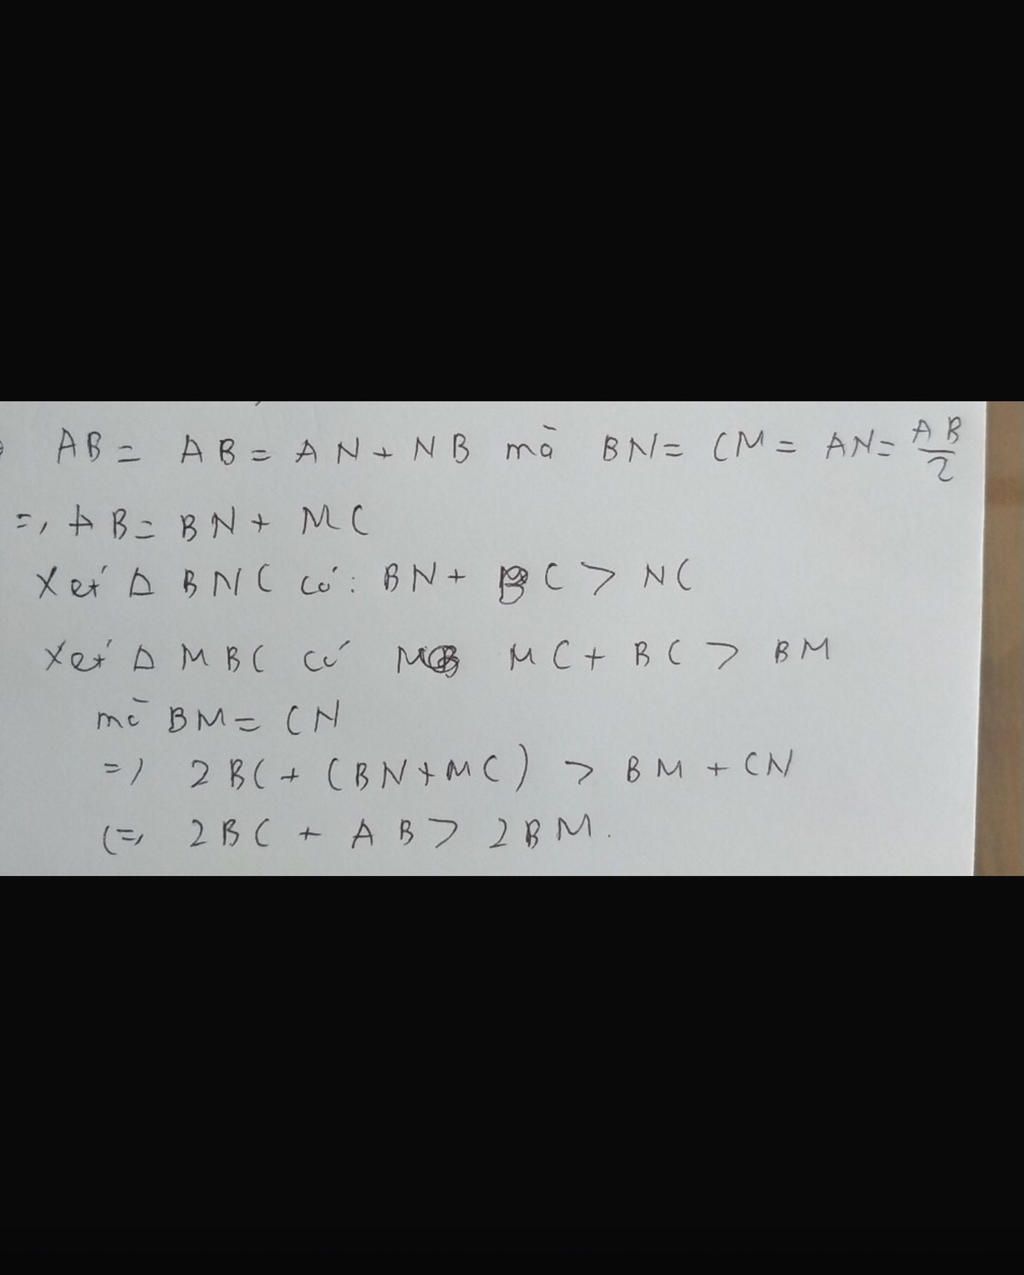 AB = AB = AN + NB mà BN = CM = AN = AB/2
=> AB = BN + MC
Xét Δ BNC có: BN + BC > NC
Xét Δ MBC có MC + BC > BM
mà BM = CN
=> 2BC + (BN + MC) > BM + CN
<=> 2BC + AB > 2BM.